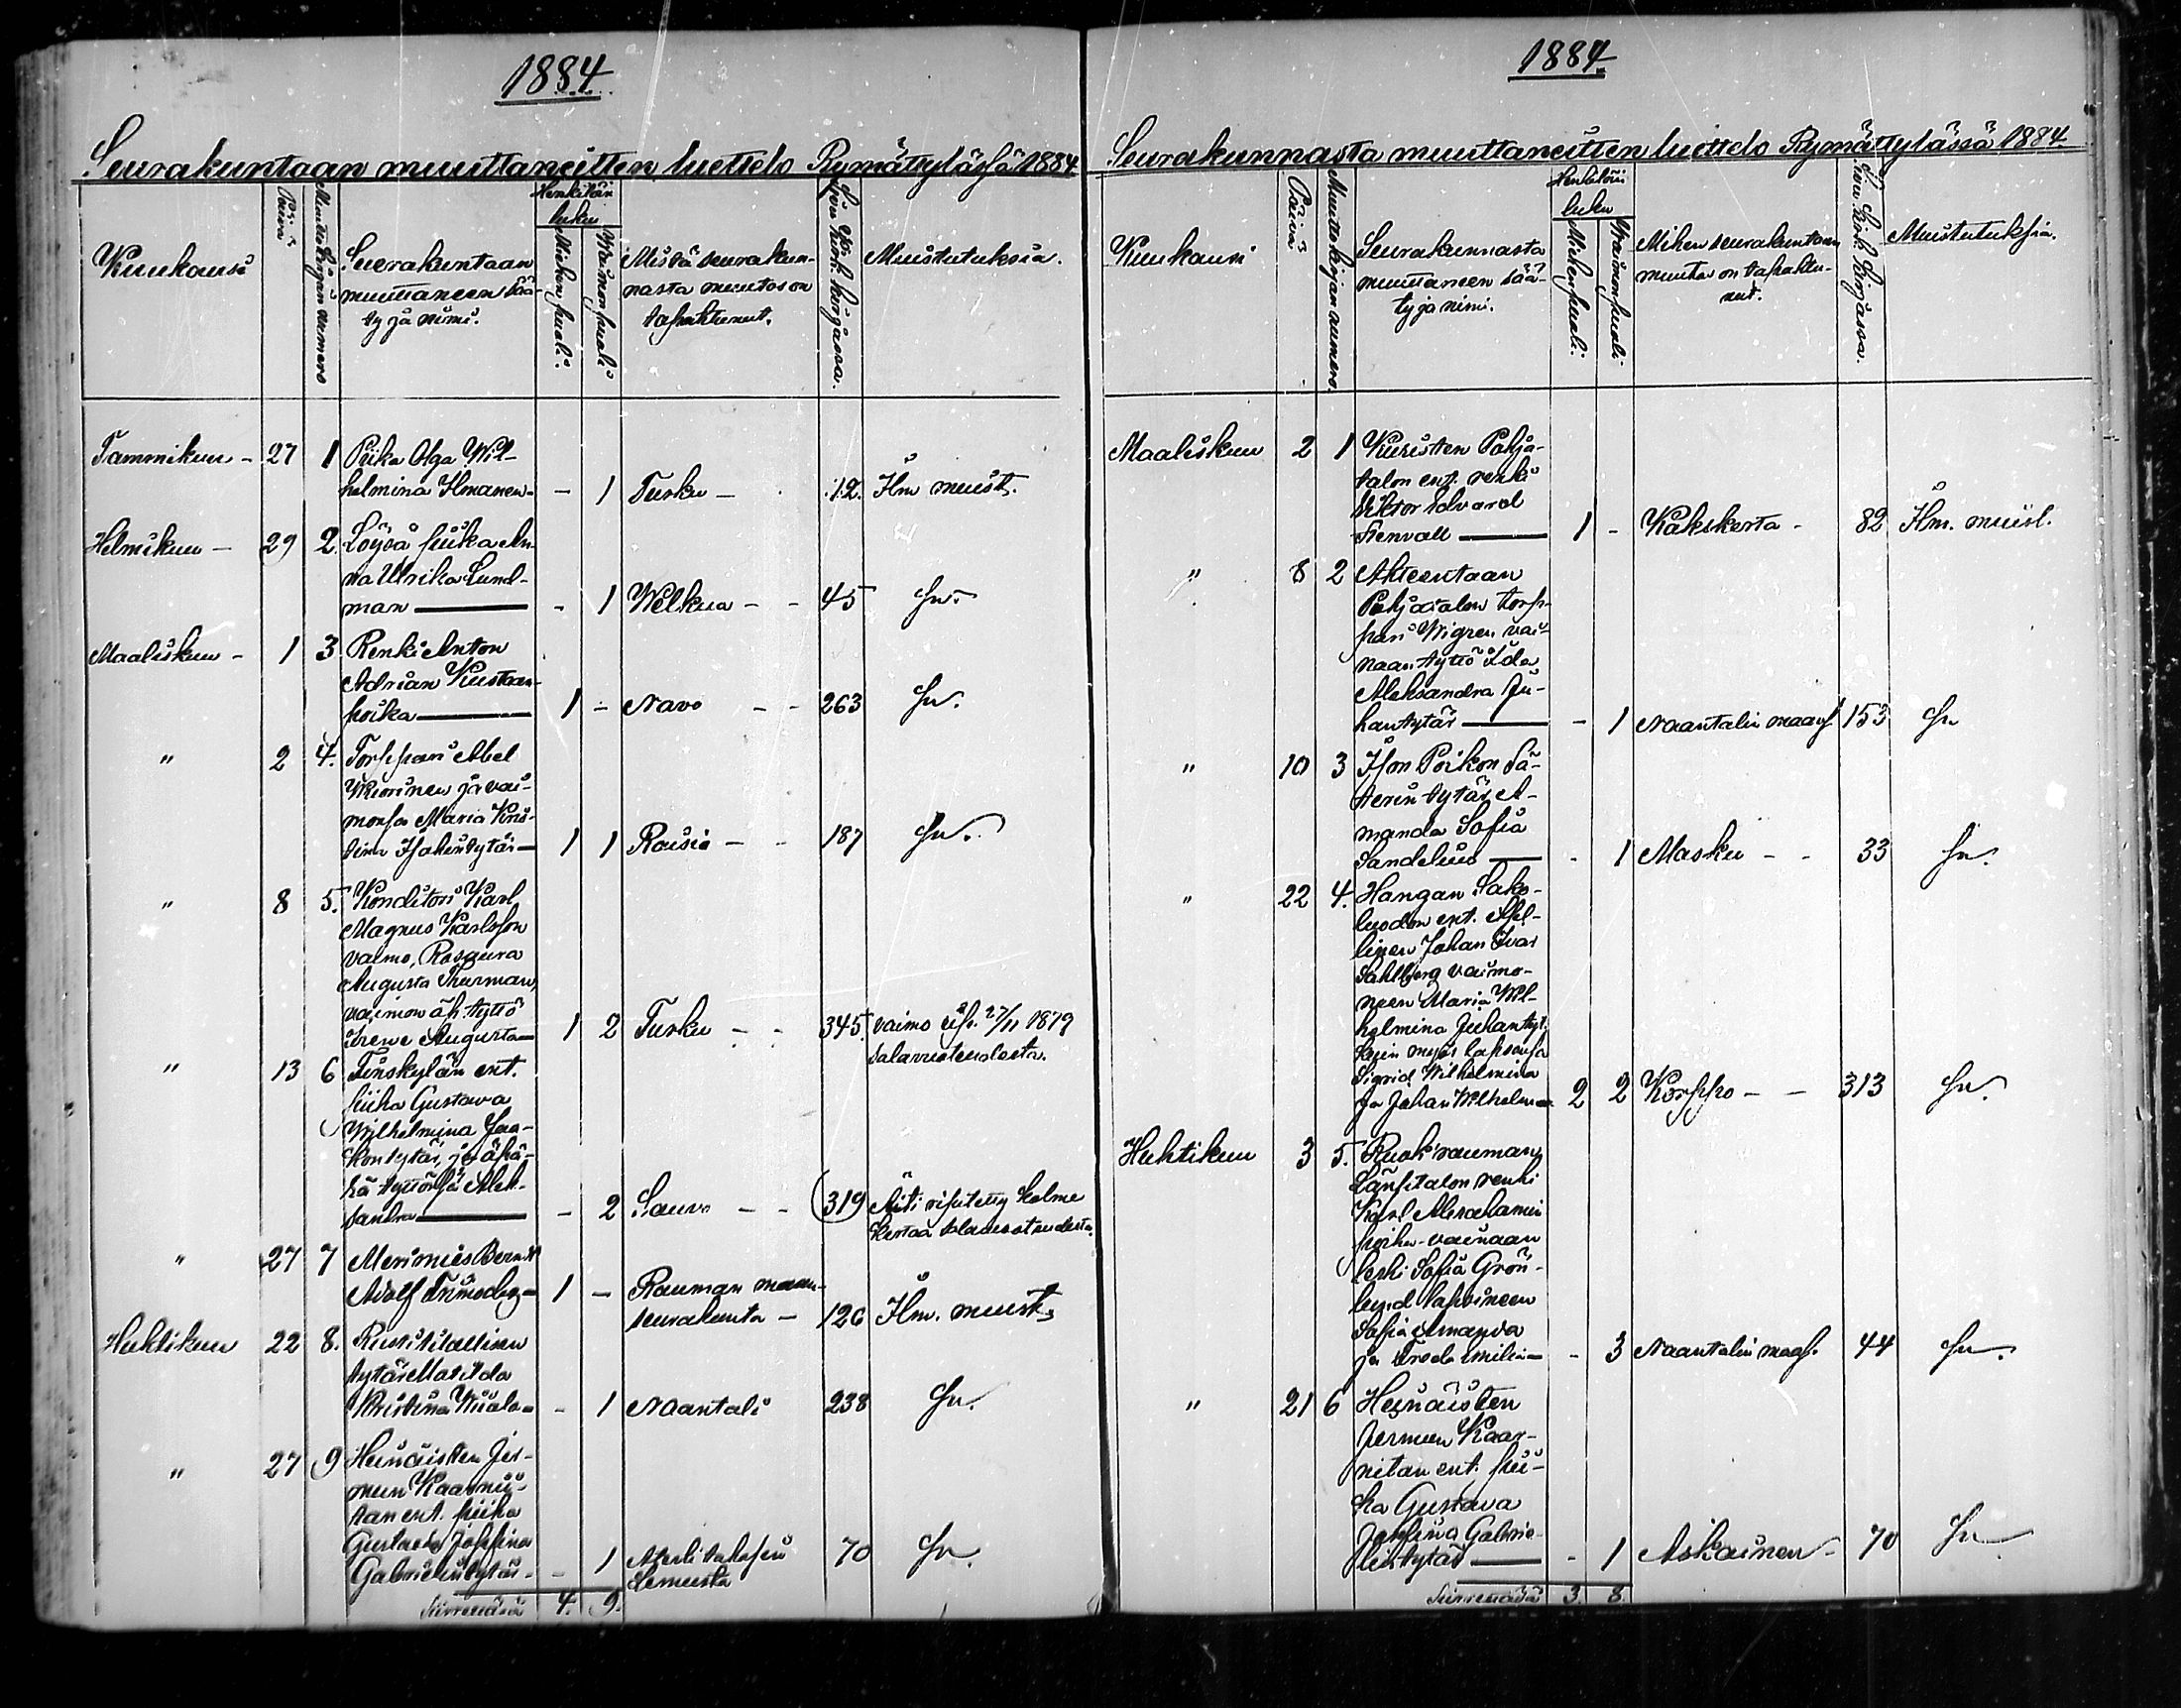 1884
Seurakuntaan muuttaneitten luettelo Rymättylässä 1884
Kuukausi
Päivä
Muuttokirjan numero
Seurakuntaan
muuttaneen sää-
ty ja nimi.
Henkilön
luku
Miehenpuoli.
Waimonpuoli
Mistä seurakun-
nasta muutos on
tapahtunut.
kirk. kirjassa.
Muistutuksia.
Tammikuu - 27 1 Piika Olga Wil-
helmina Ilmanen - - 1 Turku - 12. Ilm muist.
Helmikuu - 29 2. Löysä piika An-
na Ulrika Lund-
man - 1 Welkua - - 45
Maaliskuu - 1 3 Renki Anton
Adrian Kustaan-
poika 1 - Navo - - 263
" 2 4. Torppari Abel
ja vai-
monsa Maria Kris-
tina Isakintytär 1 1 Raisio - - 187
" 8 5. Konditori Karl
Magnus Karlsson
vaimo, Rosaura
Augusta Thurman,
vaimon äp. tyttö
Irene Augusta 1 2 Turku - - 345. vaimo rip. 27/11 1879
salavuoteudesta.
" 13 6 ent.
piika Gustava
Wilhelmina Jaa-
kontytär, ja äpä-
rä tyttönsä Alek-
sandra - 2 Sauvo - - 319 Äiti ripitetty kolme
kertaa salavuoteudesta.
" 27 7 Merimies Berndt
Adolf 1 - Rauman maan-
seurakunta - 126 Ilm. muist.
Huhtikuu 22 8.
tytär Matilda
Kristina - 1 Naantali 238
" 27 9 Heinäisten Jer-
mun Kaarnii-
tan ent. piika
Gustava Josefina
Gabrielintytär - - 1
Lemusta 70
Siirrettävä 4. 9.
1884
Seurakunnasta muuttaneitten luettelo Rymättylässä 1884
Kuukausi
Päivä
Muuttokirjan numero.
Seurakunnasta
muuttaneen sää-
ty ja nimi.
Henkilön
luku
Miehenpuoli.
Waimonpuoli
Mihen seurakuntaan
muutos on tapahtu-
nut.
kirk. kirjassa.
Muistutuksia.
Maaliskuu 2 1 Kuristen Pohja-
talon ent. renki
Viktor Edvard
Stenvall 1 - Kakskerta - 82 Ilm. muist.
" 8 2
Pohjatalon torp-
pari Wigren vai-
naan tyttö Ida
Aleksandra Ju-
hantytär - 1 Naantalin maas. 153
" 10 3 Ison Poikon Sä-
terin tytär A-
manda Sofia
Sandelius - 1 Masku - - 33
" 22 4. Hangan Saks-
luodon ent. itsel-
linen Johan Ivar
Sahlberg vaimo-
neen Maria Wil-
helmina Juhantyt.
kuin myös lapsensa
Sigrid Wilhelmina
ja Johan Wilhelm 2 2 Korppo - - 313
Huhtikuu 3 5. Ruokrauman
Länsitalon renki
Karl Abrahamin
poika-vainaan
leski Sofia Grön-
lund lapsineen
Sofia Amanda
ja Emilia - 3 Naantalin maas. 44
" 21 6 Heinäisten
Jermun Kaar-
nitan ent. pii-
ka Gustava
Josefina Gabrie-
lintytär - 1 Askainen - 70
Siirrettävä 3 8.